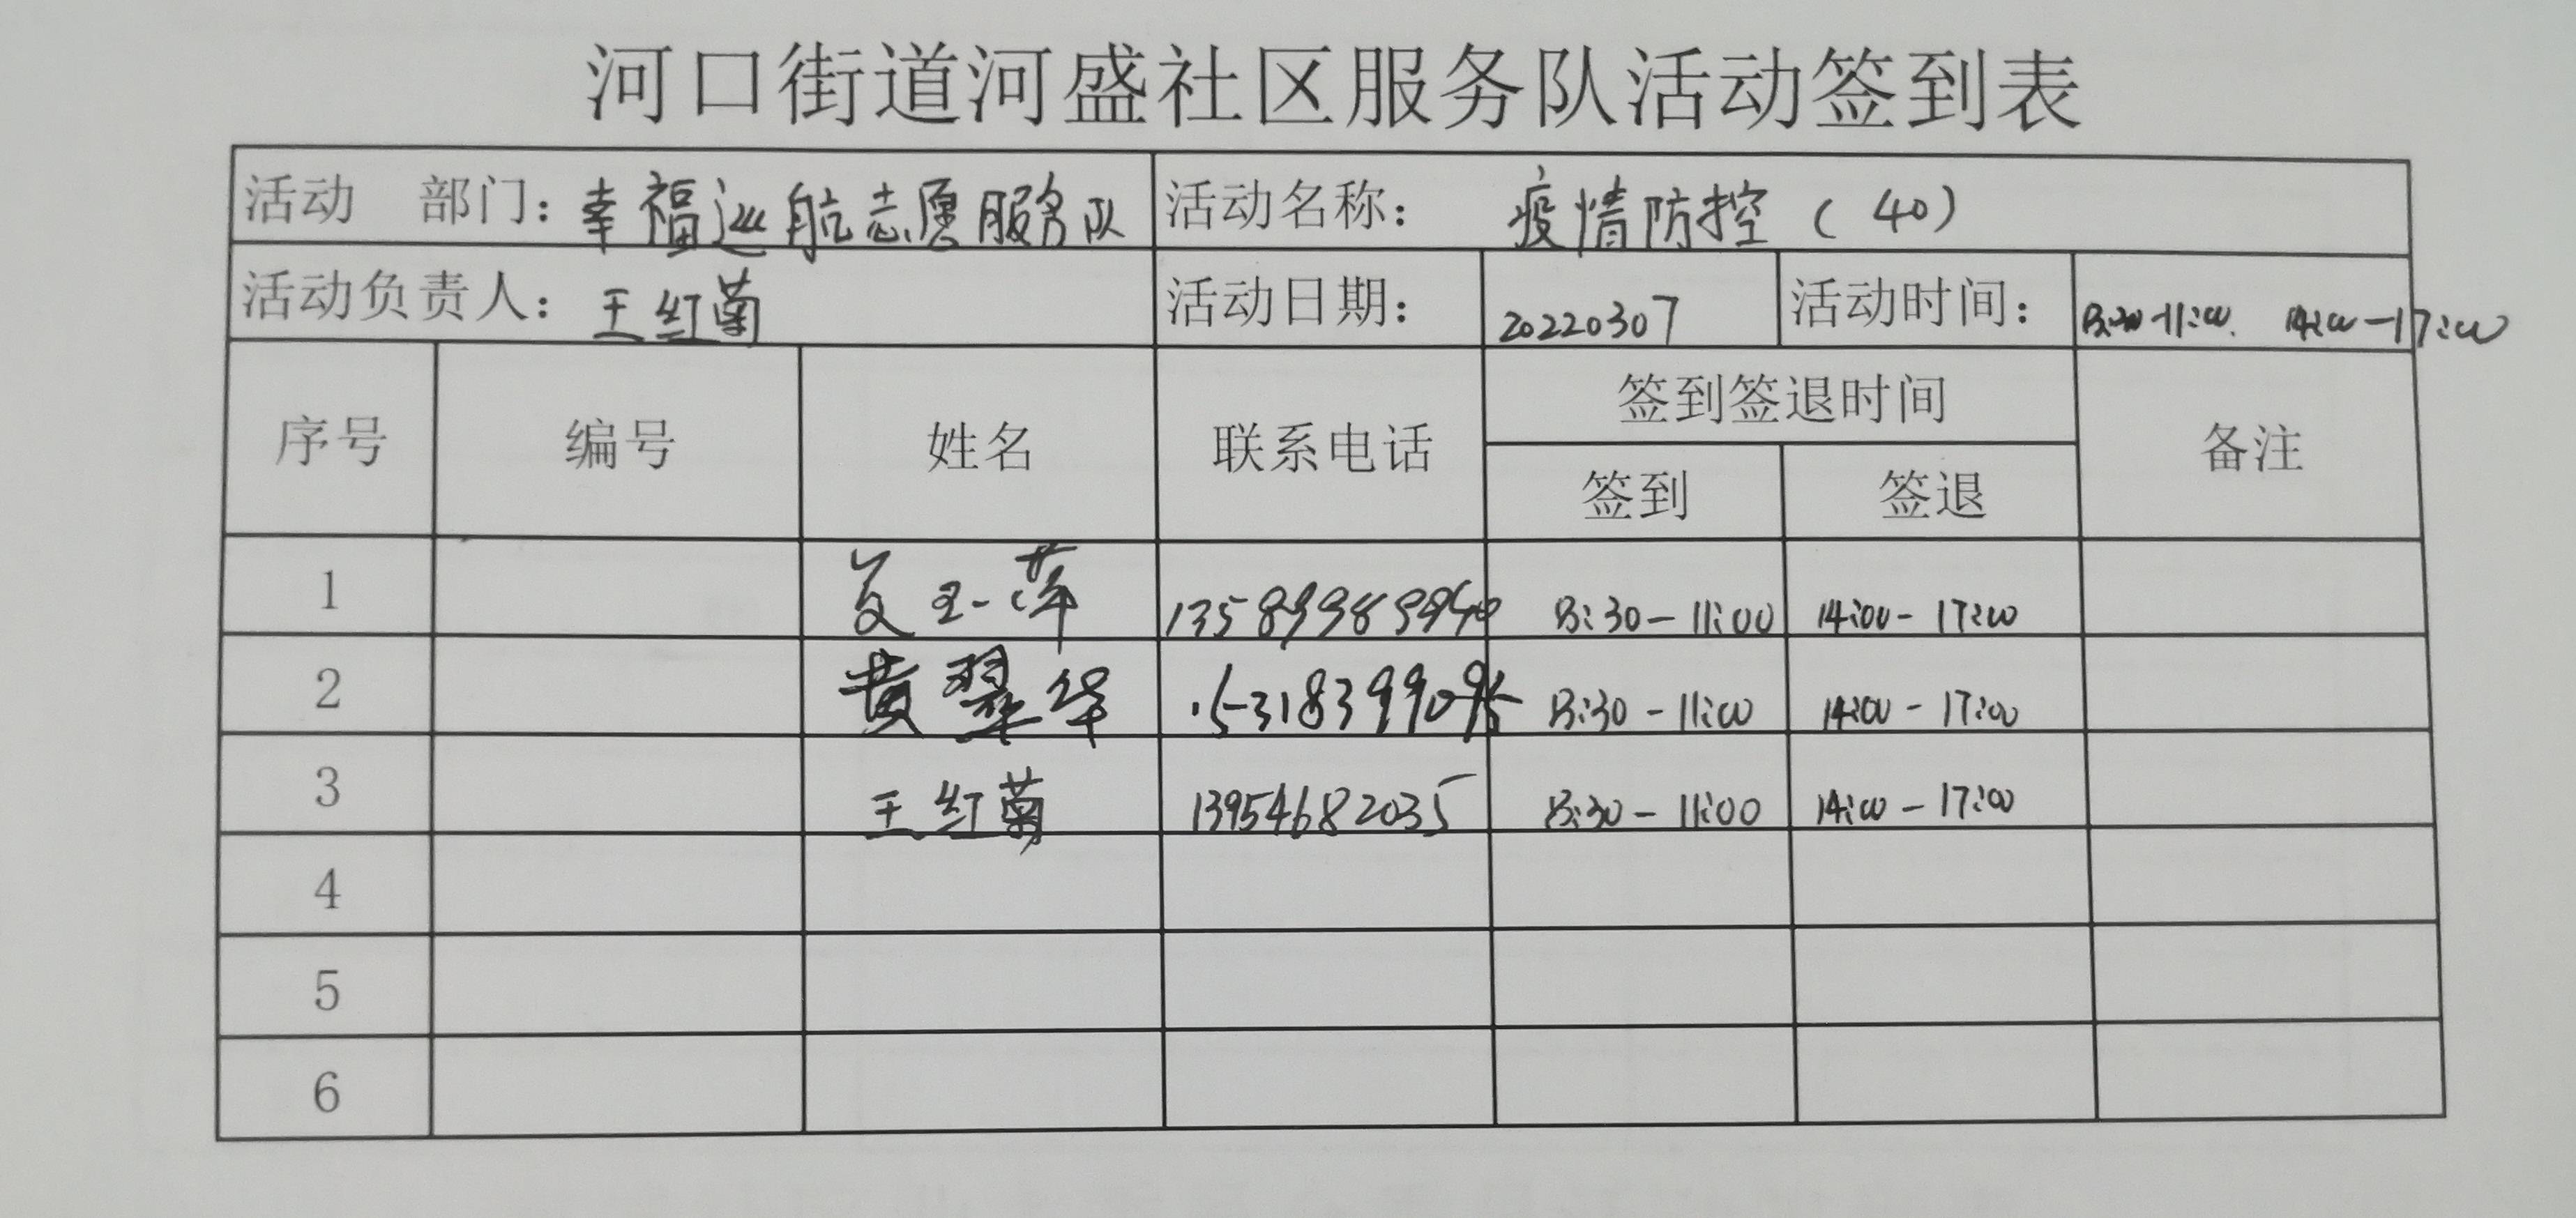 河口街道河盛社区服务队活动签到表
活动 部门：幸福巡航志愿服务队 活动名称： 疫情防控（40）
活动负责人：王红菊 活动日期： 20220307 活动时间： 8:30-11:00. 14:00-17:00
签到签退时间
序号 编号 姓名 联系电话 备注
签到 签退
1 8:30-11:00 14:00-17:00
2 黄翠华 8:30-11:00 14:00-17:00
3 王红菊 13954682035 8:30-11:00 14:00-17:00
4
5
6